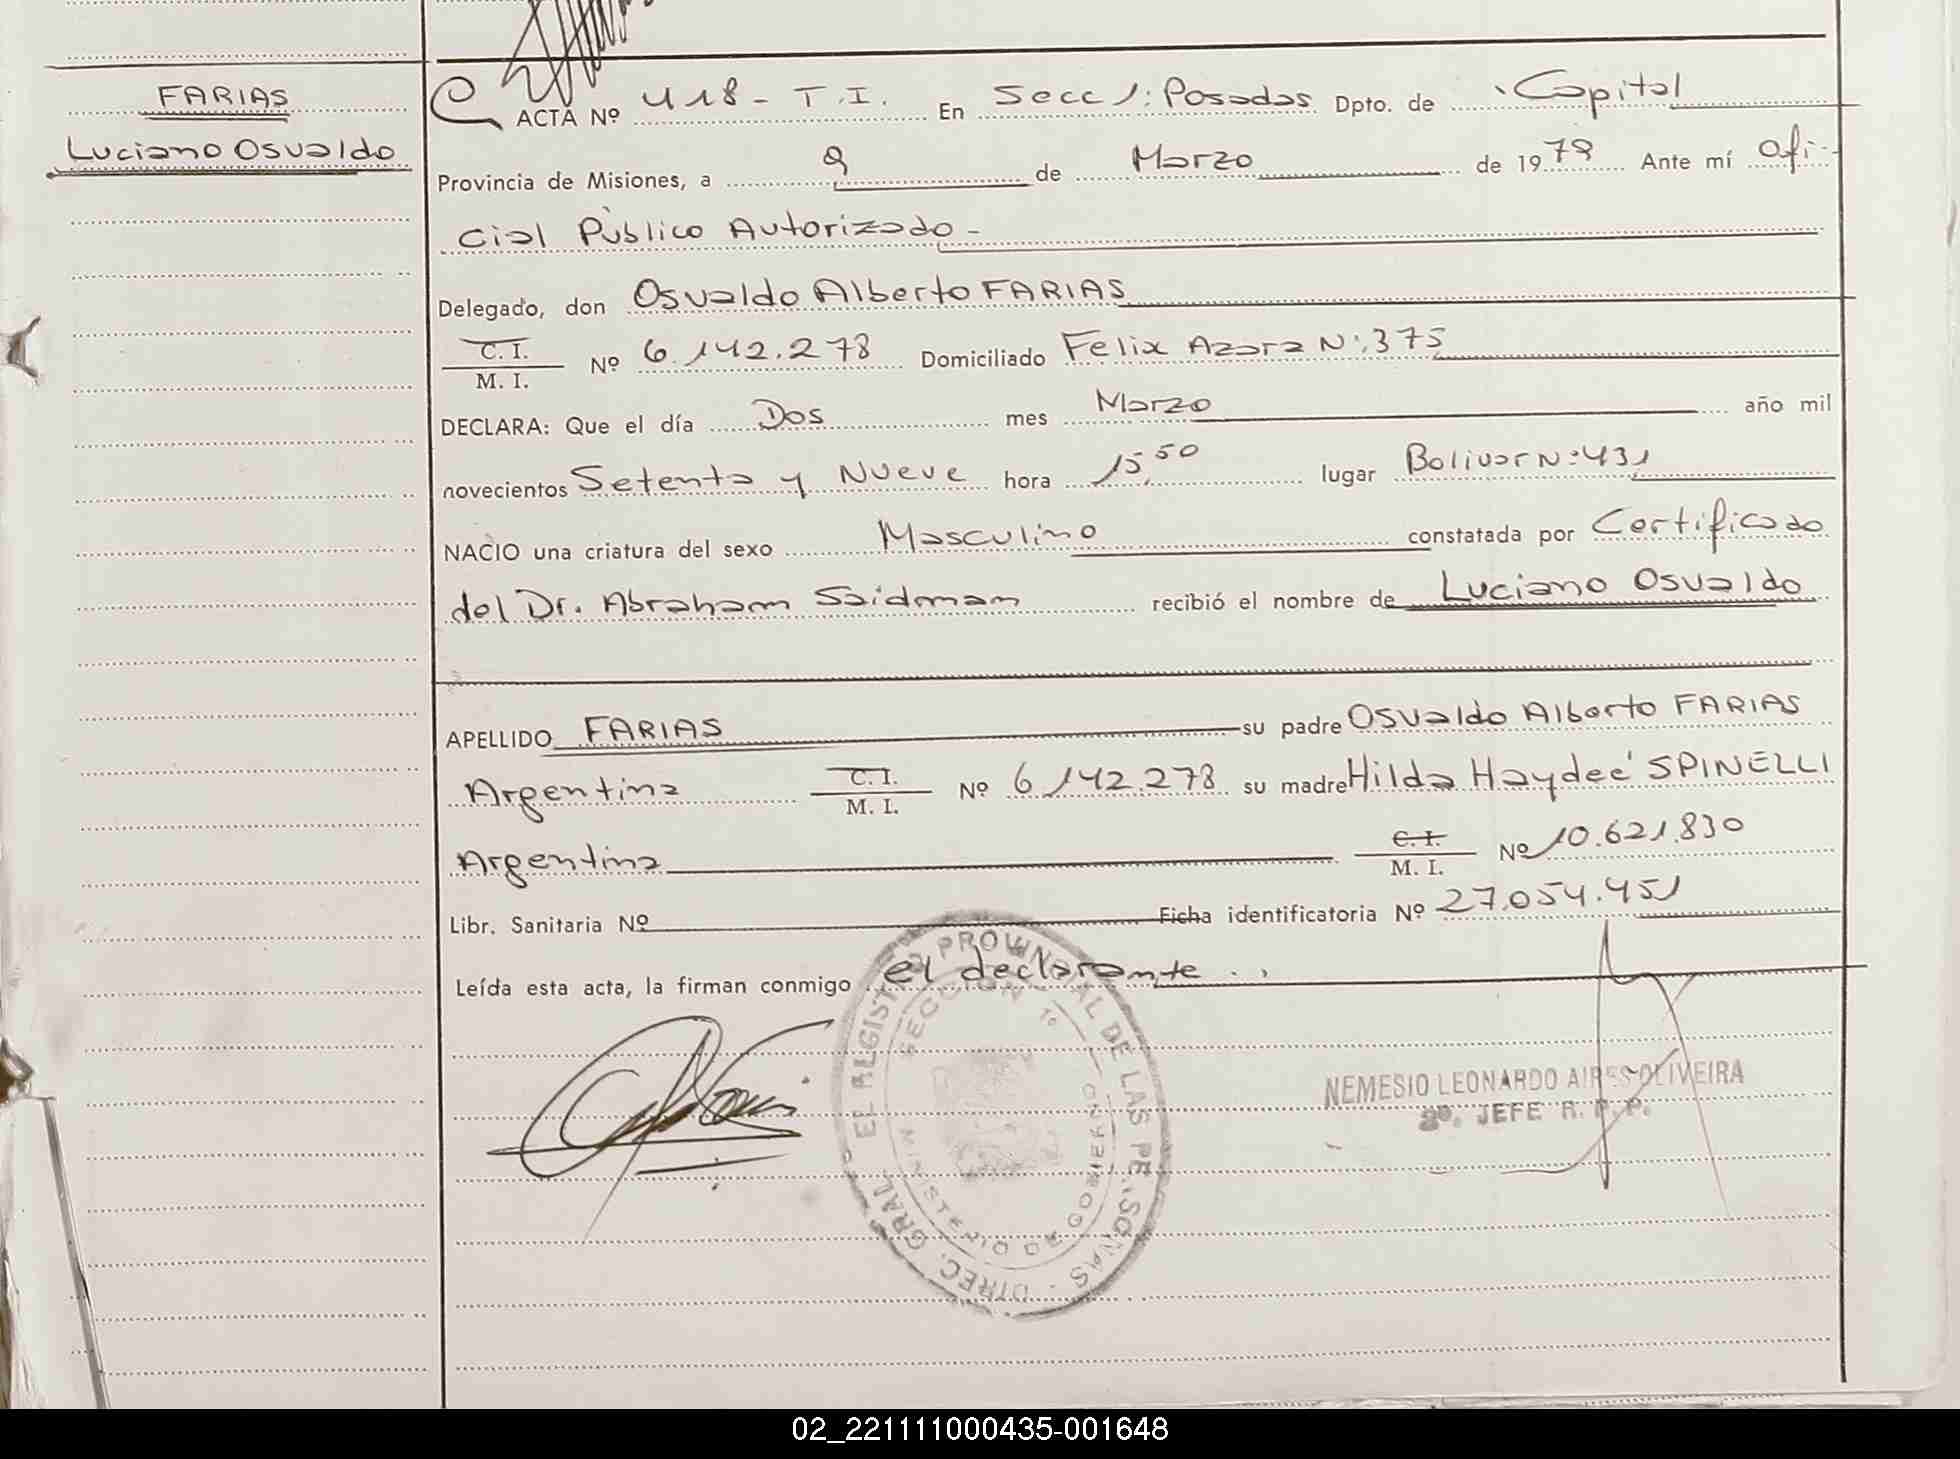 FARIAS
Luciano Osvaldo
ACTA Nº 418 - T.I. En Secc 1: Posadas Dpto. de Capital
Provincia de Misiones, a 9 de Marzo de 1979 Ante mí Ofi-
cial Público Autorizado -
Delegado, don Osvaldo Alberto FARIAS
C. I.
M. I. Nº 6.142.278 Domiciliado Felix Azara N: 375
DECLARA: Que el día Dos mes Marzo año mil
novecientos Setenta y Nueve hora 15,50 lugar Bolivar N: 431
NACIO una criatura del sexo Masculino constatada por Certificado
del Dr. Abraham Saidmam recibió el nombre de Luciano Osvaldo
APELLIDO FARIAS su padre Osvaldo Alberto FARIAS
Argentina C. I.
M. I. Nº 6.142.278 su madre Hilda Haydeé SPINELLI
Argentina C. I.
M. I. Nº 10.621.830
Libr. Sanitaria Nº Ficha identificatoria Nº 27.054.451
Leída esta acta, la firman conmigo el declarante . .
DIREC. GRAL. DEL REGISTRO PROVINCIAL DE LAS PERSONAS
SECCION 1º
MINISTERIO DE GOBIERNO
NEMESIO LEONARDO AIRES OLIVEIRA
2º. JEFE R. P. P.
02_221111000435-001648